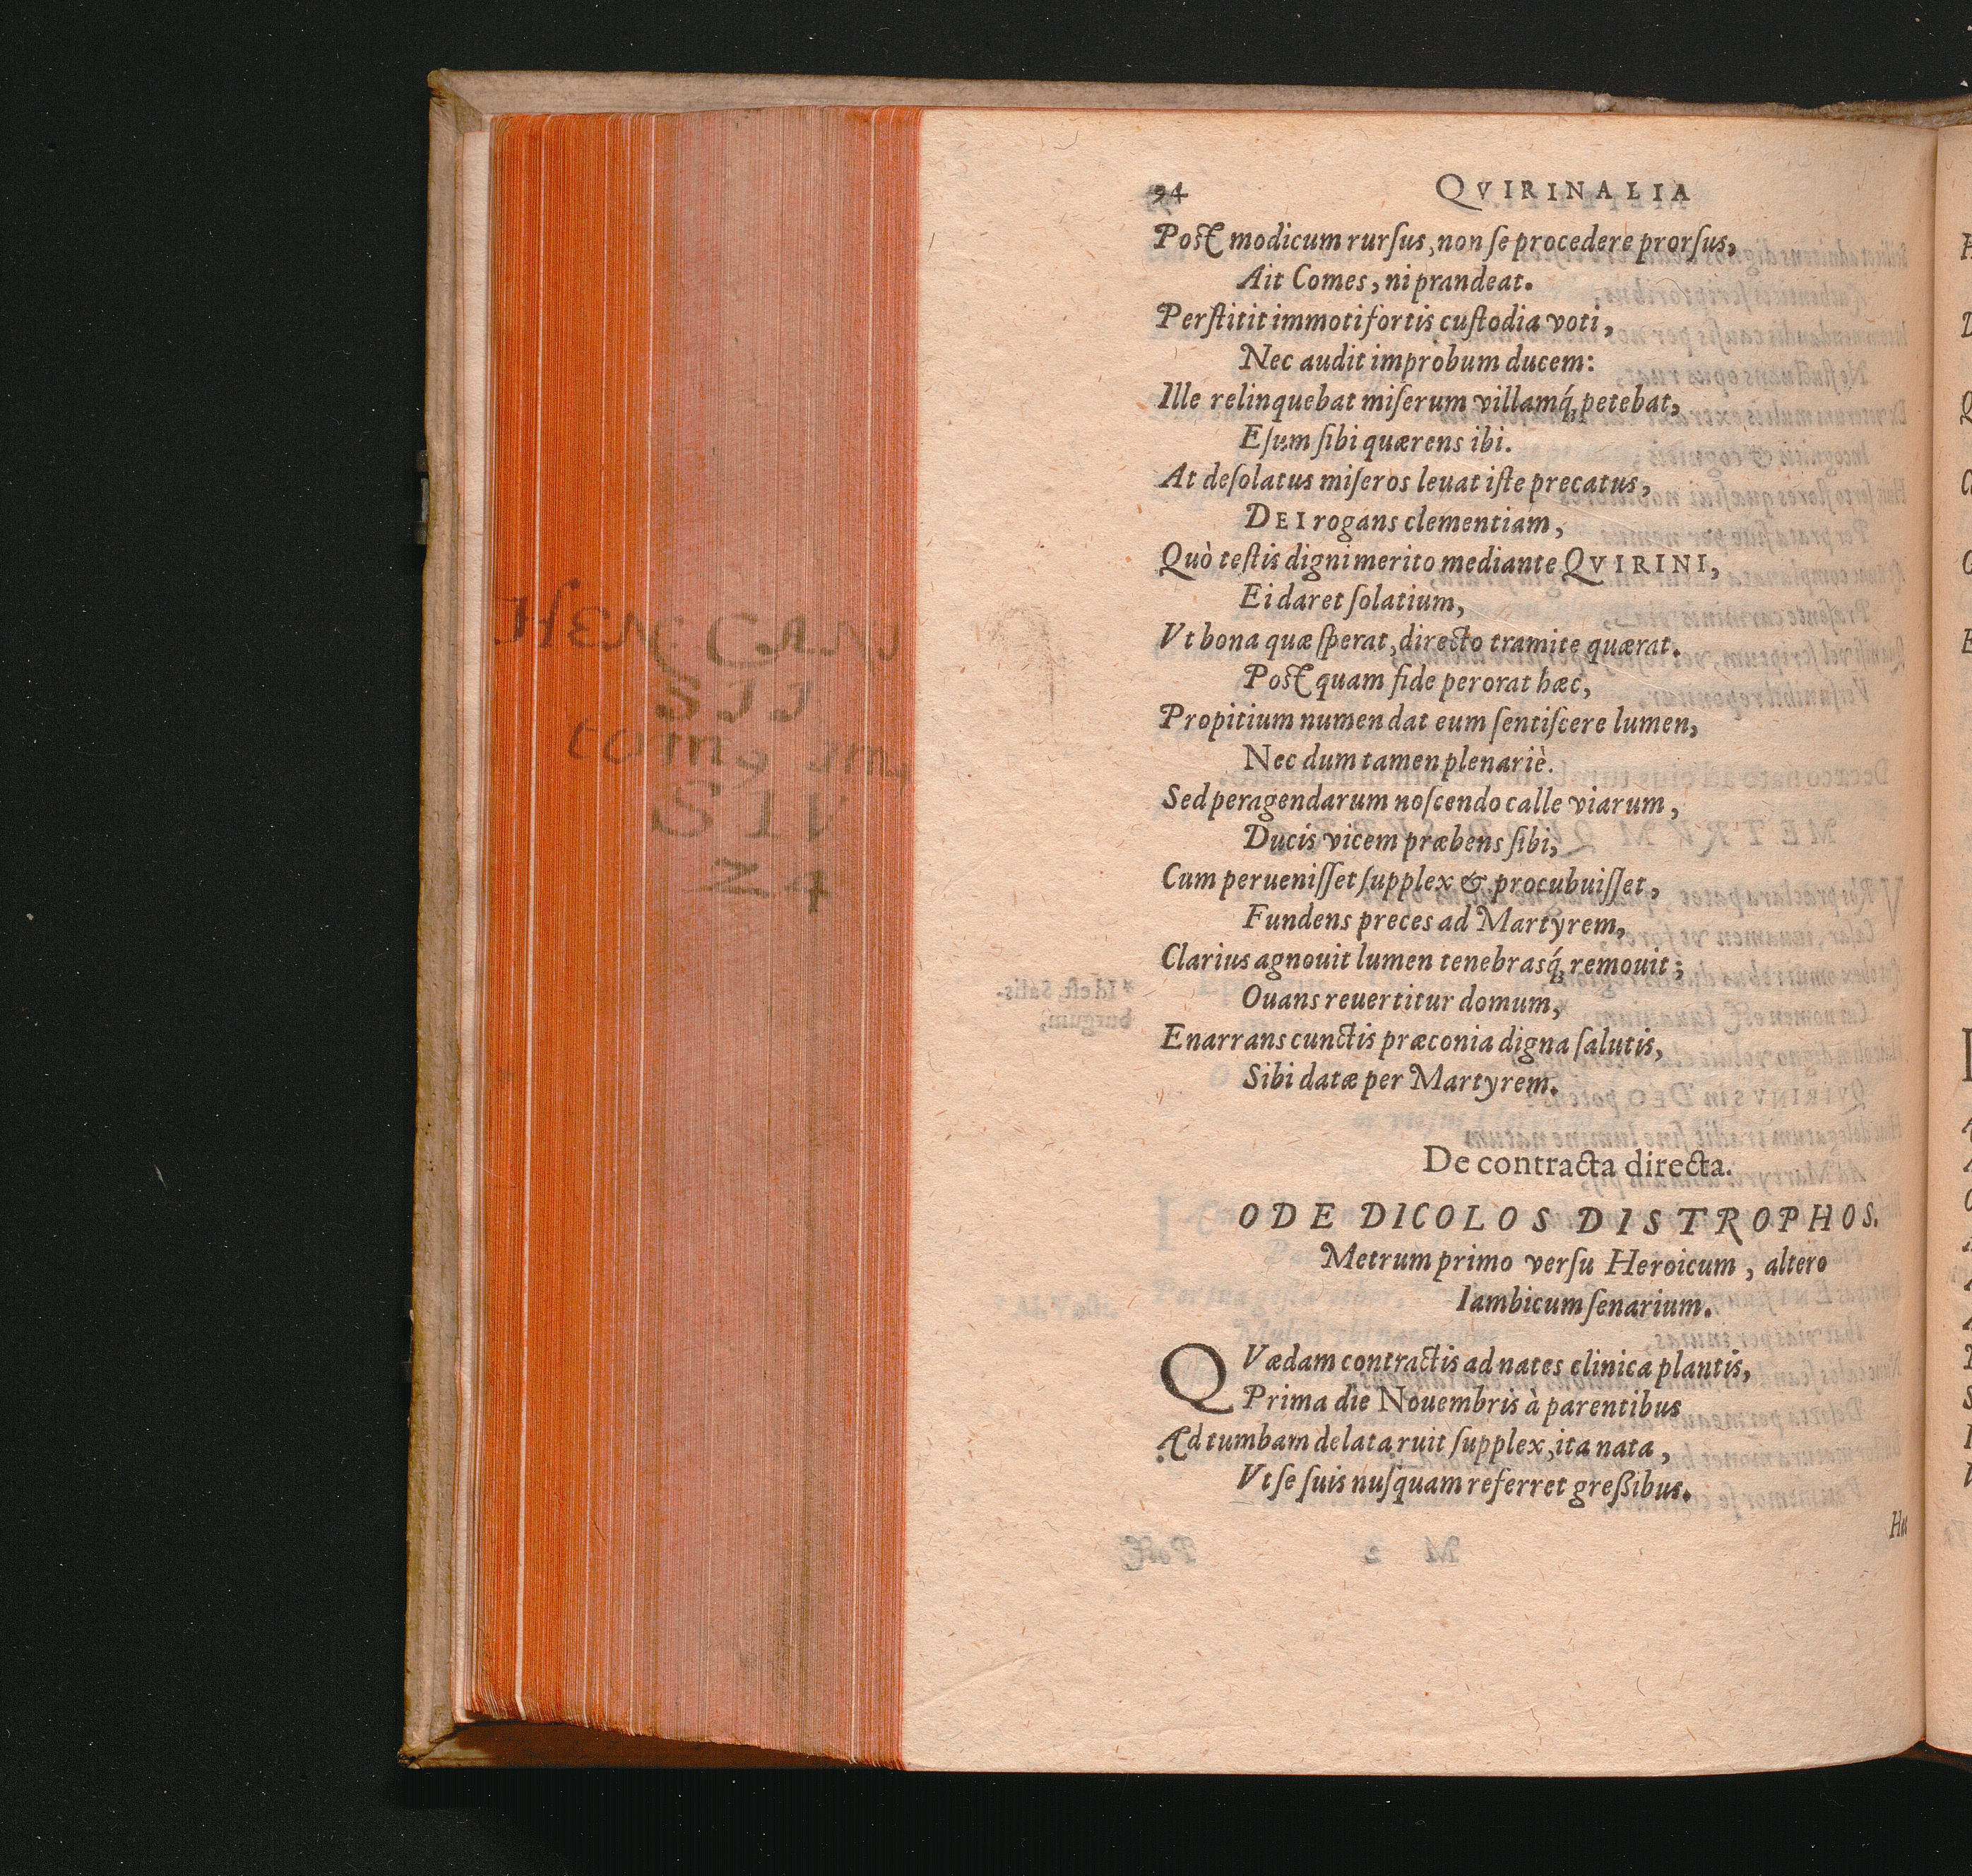 94 QVIRINALIA
Post modicum rurſus, non ſe procedere prorſus,
Ait Comes, ni prandeat.
Perſtitit immoti fortis cuſtodia voti,
Nec audit improbum ducem:
Ille relinquebat miſerum villamq́; petebat,
Eſum ſibi quærens ibi.
At deſolatus miſeros leuat iſte precatus,
DEI rogans clementiam,
Quò teſtis digni merito mediante QVIRINI,
Ei daret ſolatium,
Vt bona quæ ſperat, directo tramite quærat.
Post quam fide perorat hæc,
Propitium numen dat eum ſentiſcere lumen,
Nec dum tamen plenariè.
Sed peragendarum noſcendo calle viarum,
Ducis vicem præbens ſibi,
Cum perueniſſet ſupplex & procubuiſſet,
Fundens preces ad Martyrem,
Clarius agnouit lumen tenebrasq́; remouit;
Ouans reuertitur domum,
Enarrans cunctis præconia digna ſalutis,
Sibi datæ per Martyrem.
De contracta directa.
ODE DICOLOS DISTROPHOS.
Metrum primo verſu Heroicum, altero
Iambicum ſenarium.
QVædam contractis ad nates clinica plantis,
Prima die Nouembris à parentibus
Ad tumbam delata ruit ſupplex, ita nata,
Vt ſe ſuis nuſquam referret greßibus.